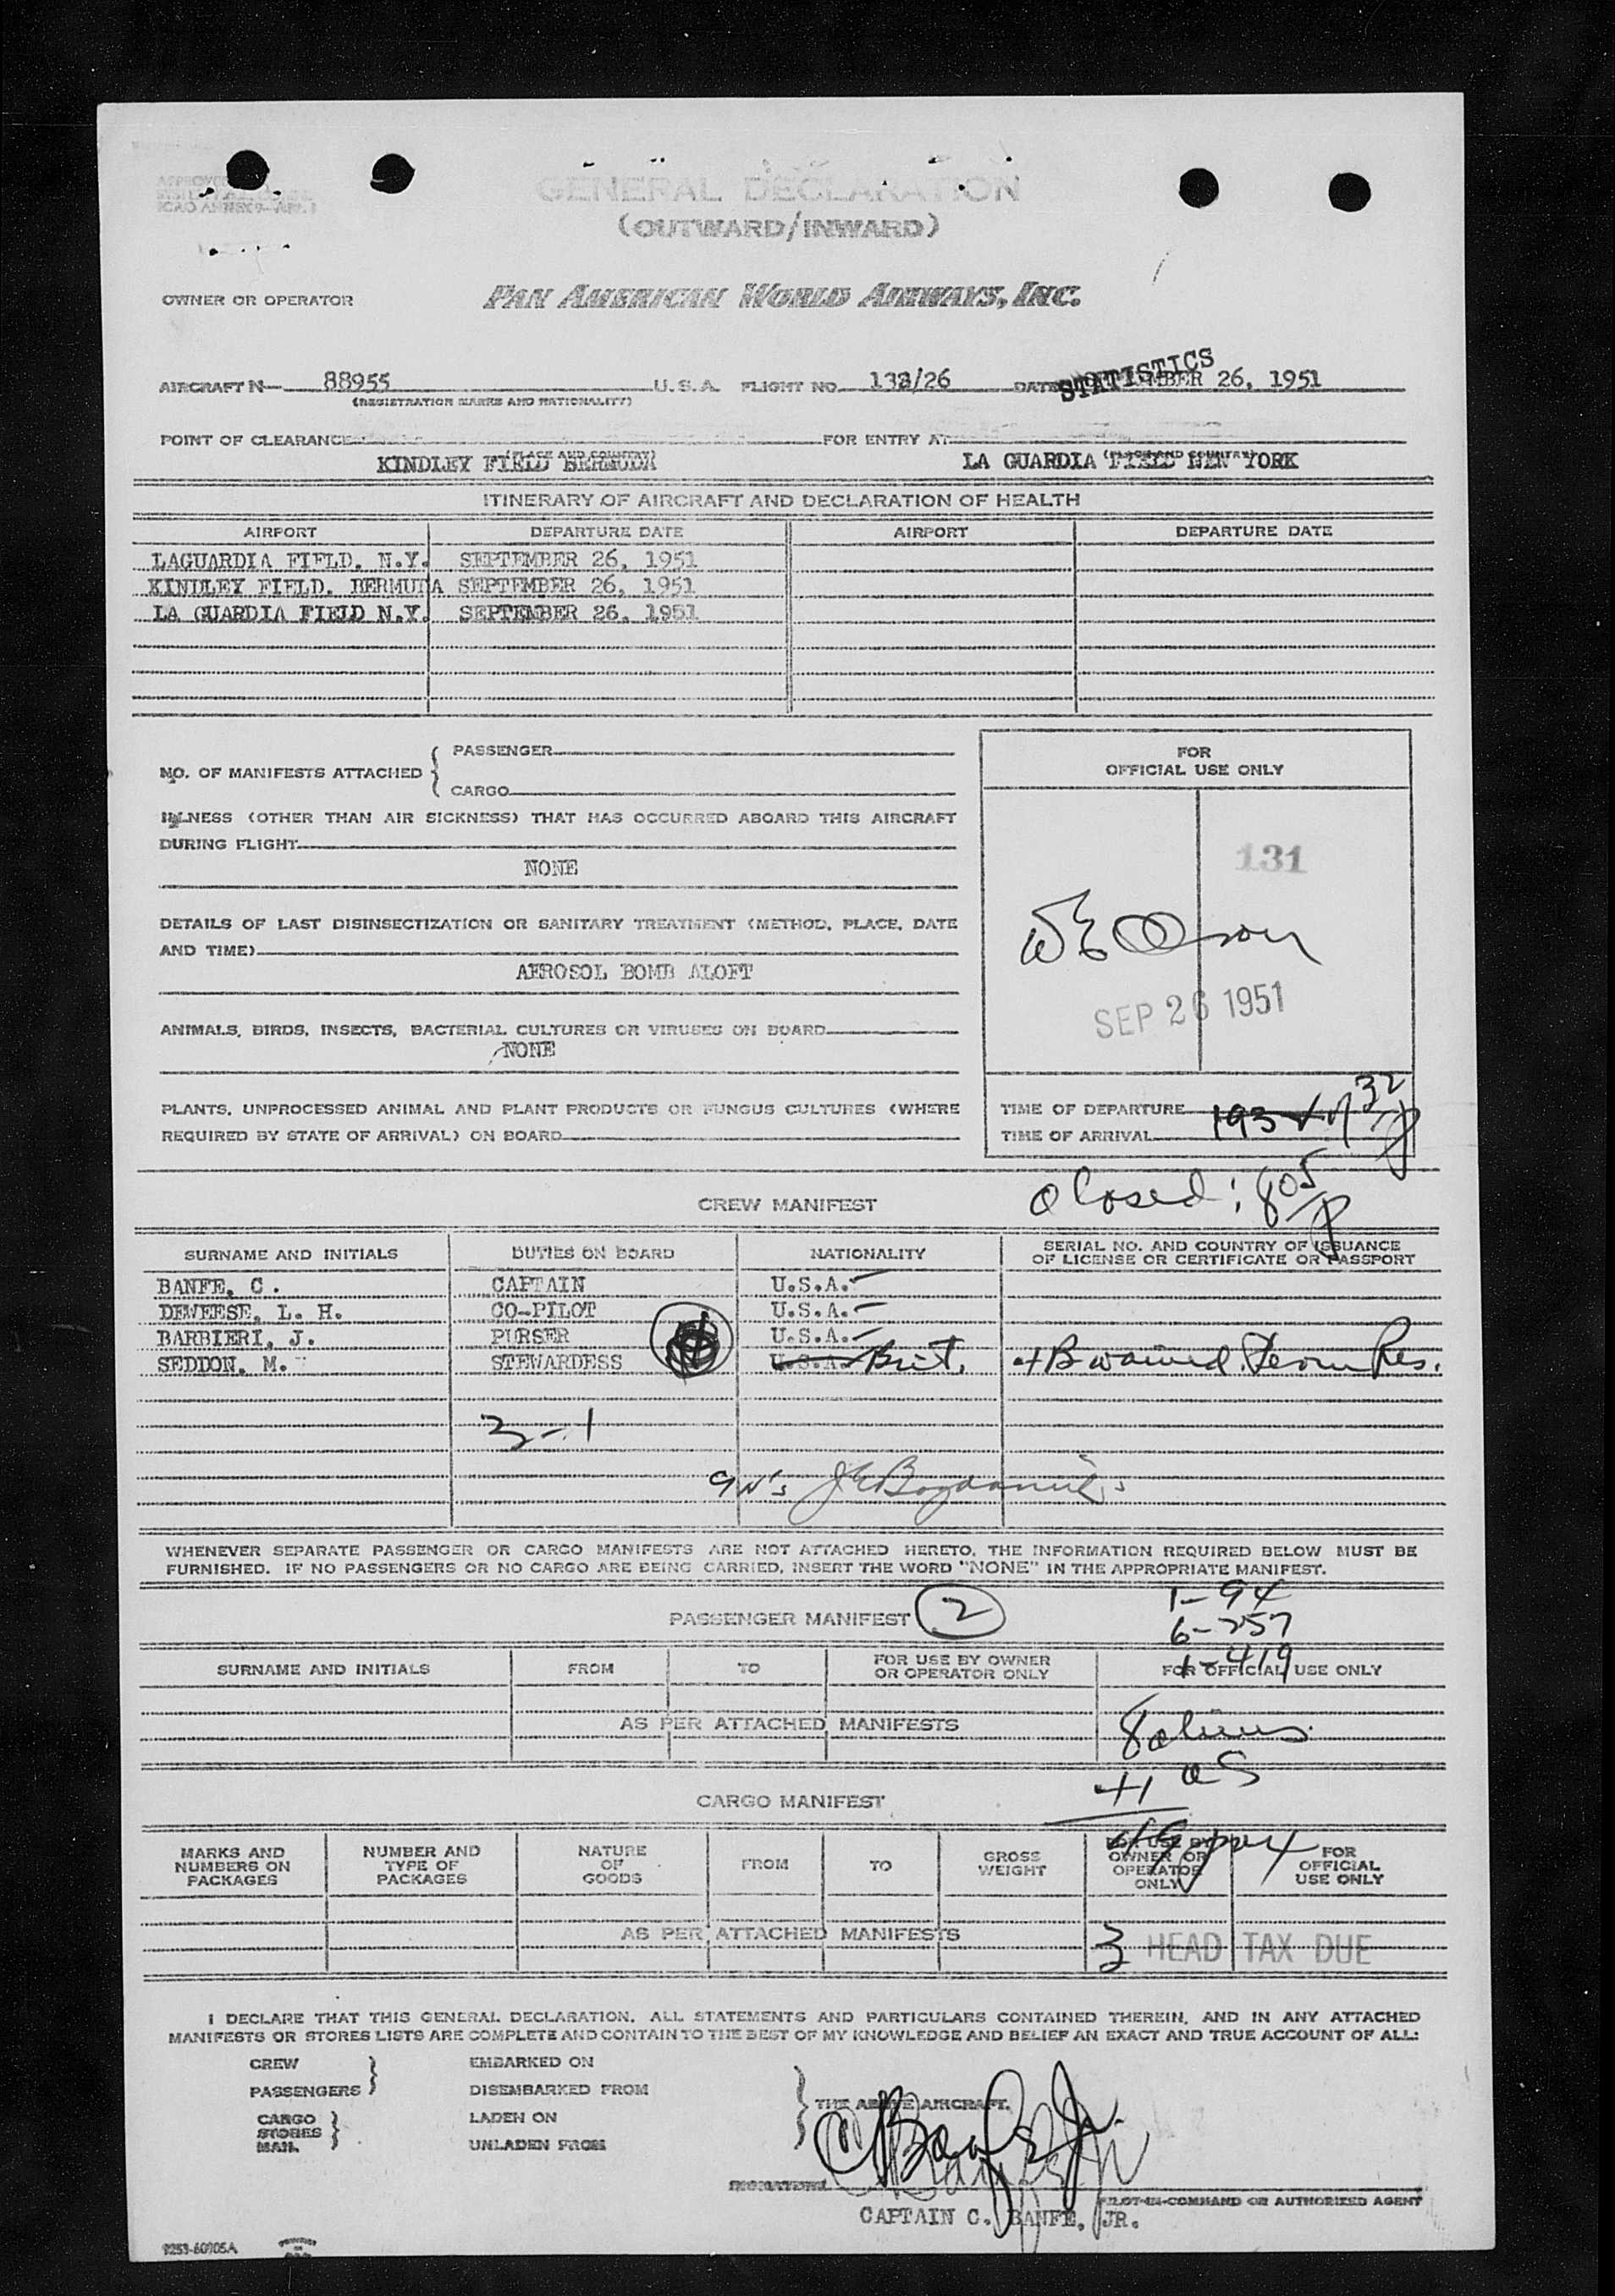 GENERAL DECLARATION
(OUTWARD/INWARD)
OWNER OR OPERATOR PAN AMERICAN WORLD AIRWAYS, INC.
STATISTICS
AIRCRAFT N— 88955 U. S. A. FLIGHT NO. 138/26 DATE 26, 1951
(REGISTRATION MARKS AND NATIONALITY)
POINT OF CLEARANCE FOR ENTRY AT
(PLACE AND COUNTRY) (PLACE AND COUNTRY)
KINDLEY FIELD BERMUDA LA GUARDIA FIELD NEW YORK
ITINERARY OF AIRCRAFT AND DECLARATION OF HEALTH
AIRPORT DEPARTURE DATE AIRPORT DEPARTURE DATE
LAGUARDIA FIELD. N.Y. SEPTEMBER 26, 1951
KINDLEY FIELD. BERMUDA SEPTEMBER 26, 1951
LA GUARDIA FIELD N.Y. SEPTEMBER 26, 1951
NO. OF MANIFESTS ATTACHED { PASSENGER
CARGO
FOR
OFFICIAL USE ONLY
ILLNESS (OTHER THAN AIR SICKNESS) THAT HAS OCCURRED ABOARD THIS AIRCRAFT
DURING FLIGHT
131
NONE
DETAILS OF LAST DISINSECTIZATION OR SANITARY TREATMENT (METHOD, PLACE, DATE
AND TIME)
AEROSOL BOMB ALOFT
SEP 26 1951
ANIMALS, BIRDS, INSECTS, BACTERIAL CULTURES OR VIRUSES ON BOARD
NONE
PLANTS, UNPROCESSED ANIMAL AND PLANT PRODUCTS OR FUNGUS CULTURES (WHERE
REQUIRED BY STATE OF ARRIVAL) ON BOARD
TIME OF DEPARTURE
TIME OF ARRIVAL
Closed: 805 P
CREW MANIFEST
SURNAME AND INITIALS DUTIES ON BOARD NATIONALITY SERIAL NO. AND COUNTRY OF ISSUANCE
OF LICENSE OR CERTIFICATE OR PASSPORT
BANFE, C. CAPTAIN U.S.A.
DEWEESE, L. H. CO-PILOT U.S.A.
BARBIERI, J. PURSER U.S.A.
SEDDON, M. STEWARDESS U.S.A. Brit. waived Res.
3-1
9 N's
WHENEVER SEPARATE PASSENGER OR CARGO MANIFESTS ARE NOT ATTACHED HERETO, THE INFORMATION REQUIRED BELOW MUST BE
FURNISHED. IF NO PASSENGERS OR NO CARGO ARE BEING CARRIED, INSERT THE WORD "NONE" IN THE APPROPRIATE MANIFEST.
1-94
PASSENGER MANIFEST 2
6-257
1-419
SURNAME AND INITIALS FROM TO FOR USE BY OWNER
OR OPERATOR ONLY FOR OFFICIAL USE ONLY
AS PER ATTACHED MANIFESTS
8 aliens
+1
CARGO MANIFEST
MARKS AND
NUMBERS ON
PACKAGES NUMBER AND
TYPE OF
PACKAGES NATURE
OF
GOODS FROM TO GROSS
WEIGHT FOR USE BY
OWNER OR
OPERATOR
ONLY FOR
OFFICIAL
USE ONLY
AS PER ATTACHED MANIFESTS
3 HEAD TAX DUE
I DECLARE THAT THIS GENERAL DECLARATION, ALL STATEMENTS AND PARTICULARS CONTAINED THEREIN, AND IN ANY ATTACHED
MANIFESTS OR STORES LISTS ARE COMPLETE AND CONTAIN TO THE BEST OF MY KNOWLEDGE AND BELIEF AN EXACT AND TRUE ACCOUNT OF ALL:
CREW EMBARKED ON
PASSENGERS } DISEMBARKED FROM
THE ABOVE AIRCRAFT.
CARGO LADEN ON
STORES }
MAIL UNLADEN FROM
C Banfe Jr.
PILOT-IN-COMMAND OR AUTHORIZED AGENT
CAPTAIN C. BANFE, JR.
9253-60905A